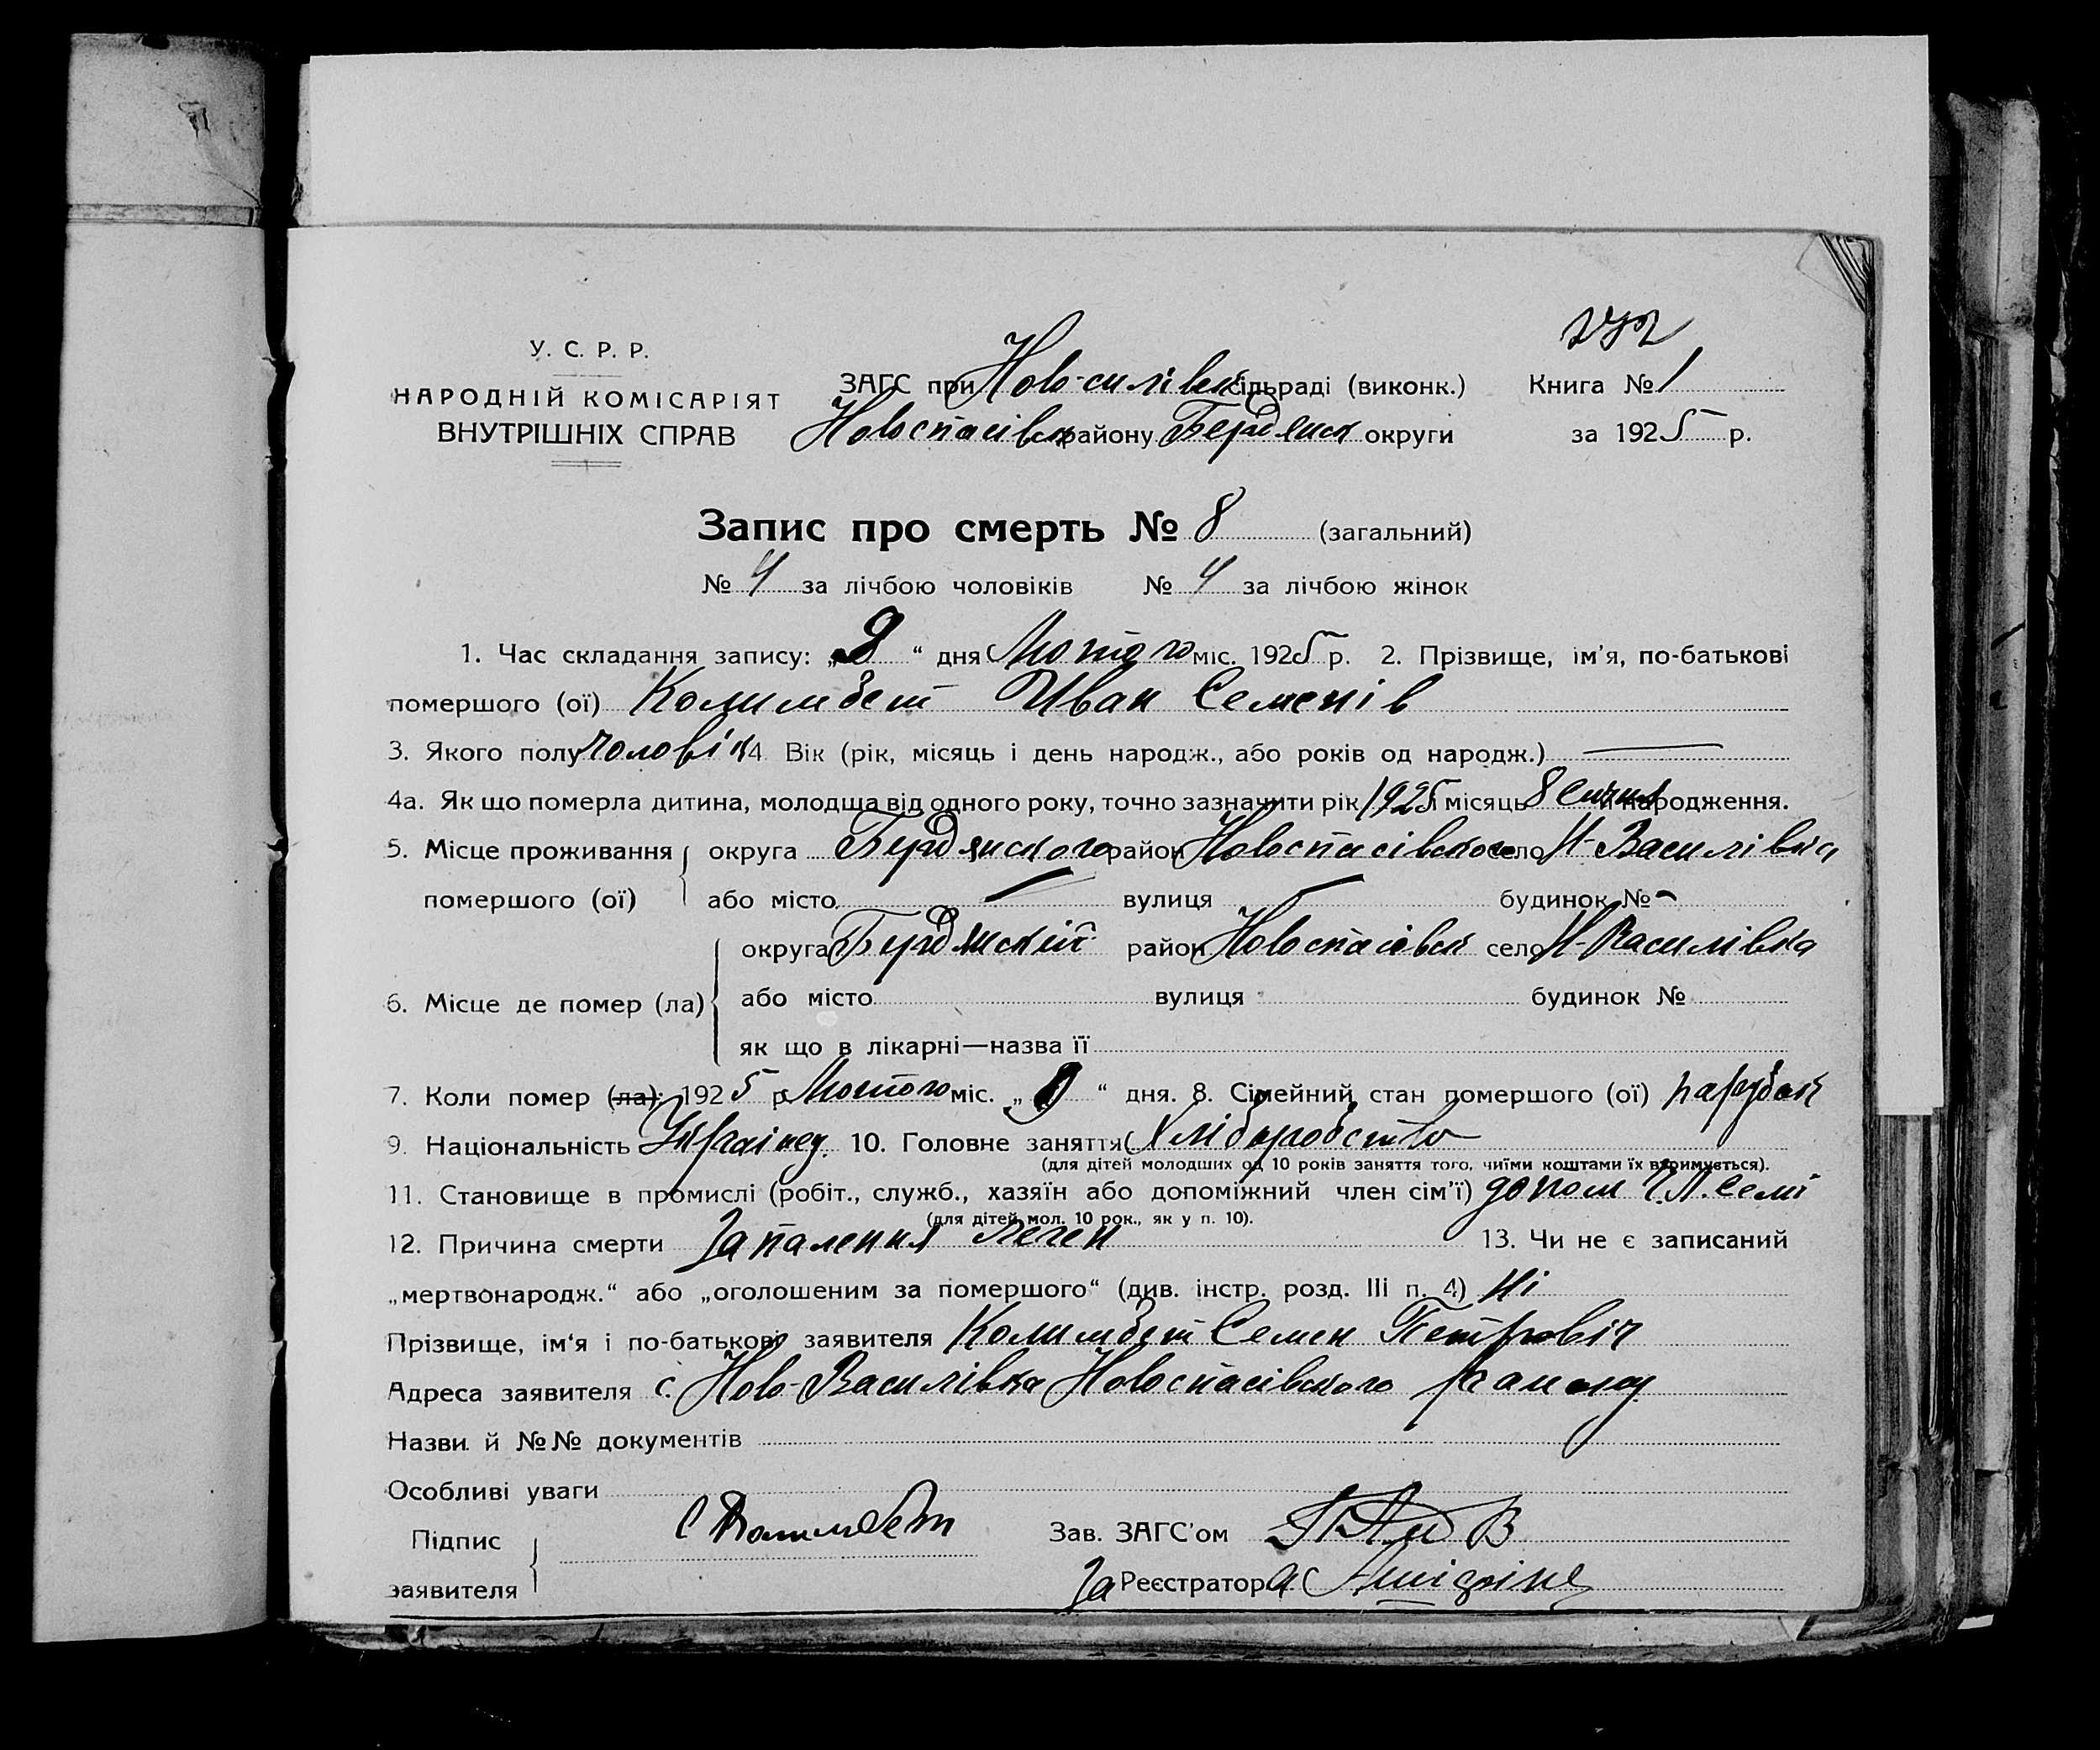 У. С. Р. Р.
НАРОДНІЙ КОМІСАРІЯТ
ВНУТРІШНІХ СПРАВ
ЗАГС при Ново-силівск сільраді (виконк.)
Новоспасівск району Бердянск округи
Книга № 1
за 1925 р.
Запис про смерть № 8 (загальний)
№ 4 за лічбою чоловіків № 4 за лічбою жінок
1. Час складання запису: „9“ дня Лютого міс. 1925 р. 2. Прізвище, ім’я, по-батькові
помершого (ої) Колимбет Иван Семенів
3. Якого полу чоловік 4 Вік (рік, місяць і день народж., або років од народж.) —
4а. Як що померла дитина, молодща від одного року, точно зазначити рік 1925 місяць 8 Січня народження.
5. Місце проживання помершого (ої) округа Бердянского район Новоспасівского село Н-Василівка
або місто — вулиця — будинок № -
6. Місце де помер (ла) округа Бердянскій район Новоспасівск село Н-Василівка
або місто вулиця будинок №
як що в лікарні—назва її
7. Коли помер (ла): 1925 р. Лютого міс. „9“ дня. 8. Сімейний стан помершого (ої) парубок
9. Національність Українец. 10. Головне заняття Хліборобство
(для дітей молодших од 10 років заняття того, чиїми коштами їх втримується).
11. Становище в промислі (робіт., служб., хазяїн або допоміжний член сім’ї) допом Ч.Л. семі
(для дітей мол. 10 рок., як у п. 10).
12. Причина смерти Запалення легень 13. Чи не є записаний
„мертвонародж.“ або „оголошеним за помершого“ (див. інстр. розд. III п. 4) Ні
Прізвище, ім‘я і по-батькові заявителя Колимбет Семен Петровіч
Адреса заявителя с. Ново-Василівка Новоспасівского району
Назви й №№ документів
Особливі уваги
Підпис заявителя С Колимбет
Зав. ЗАГС’ом
За Реєстратора